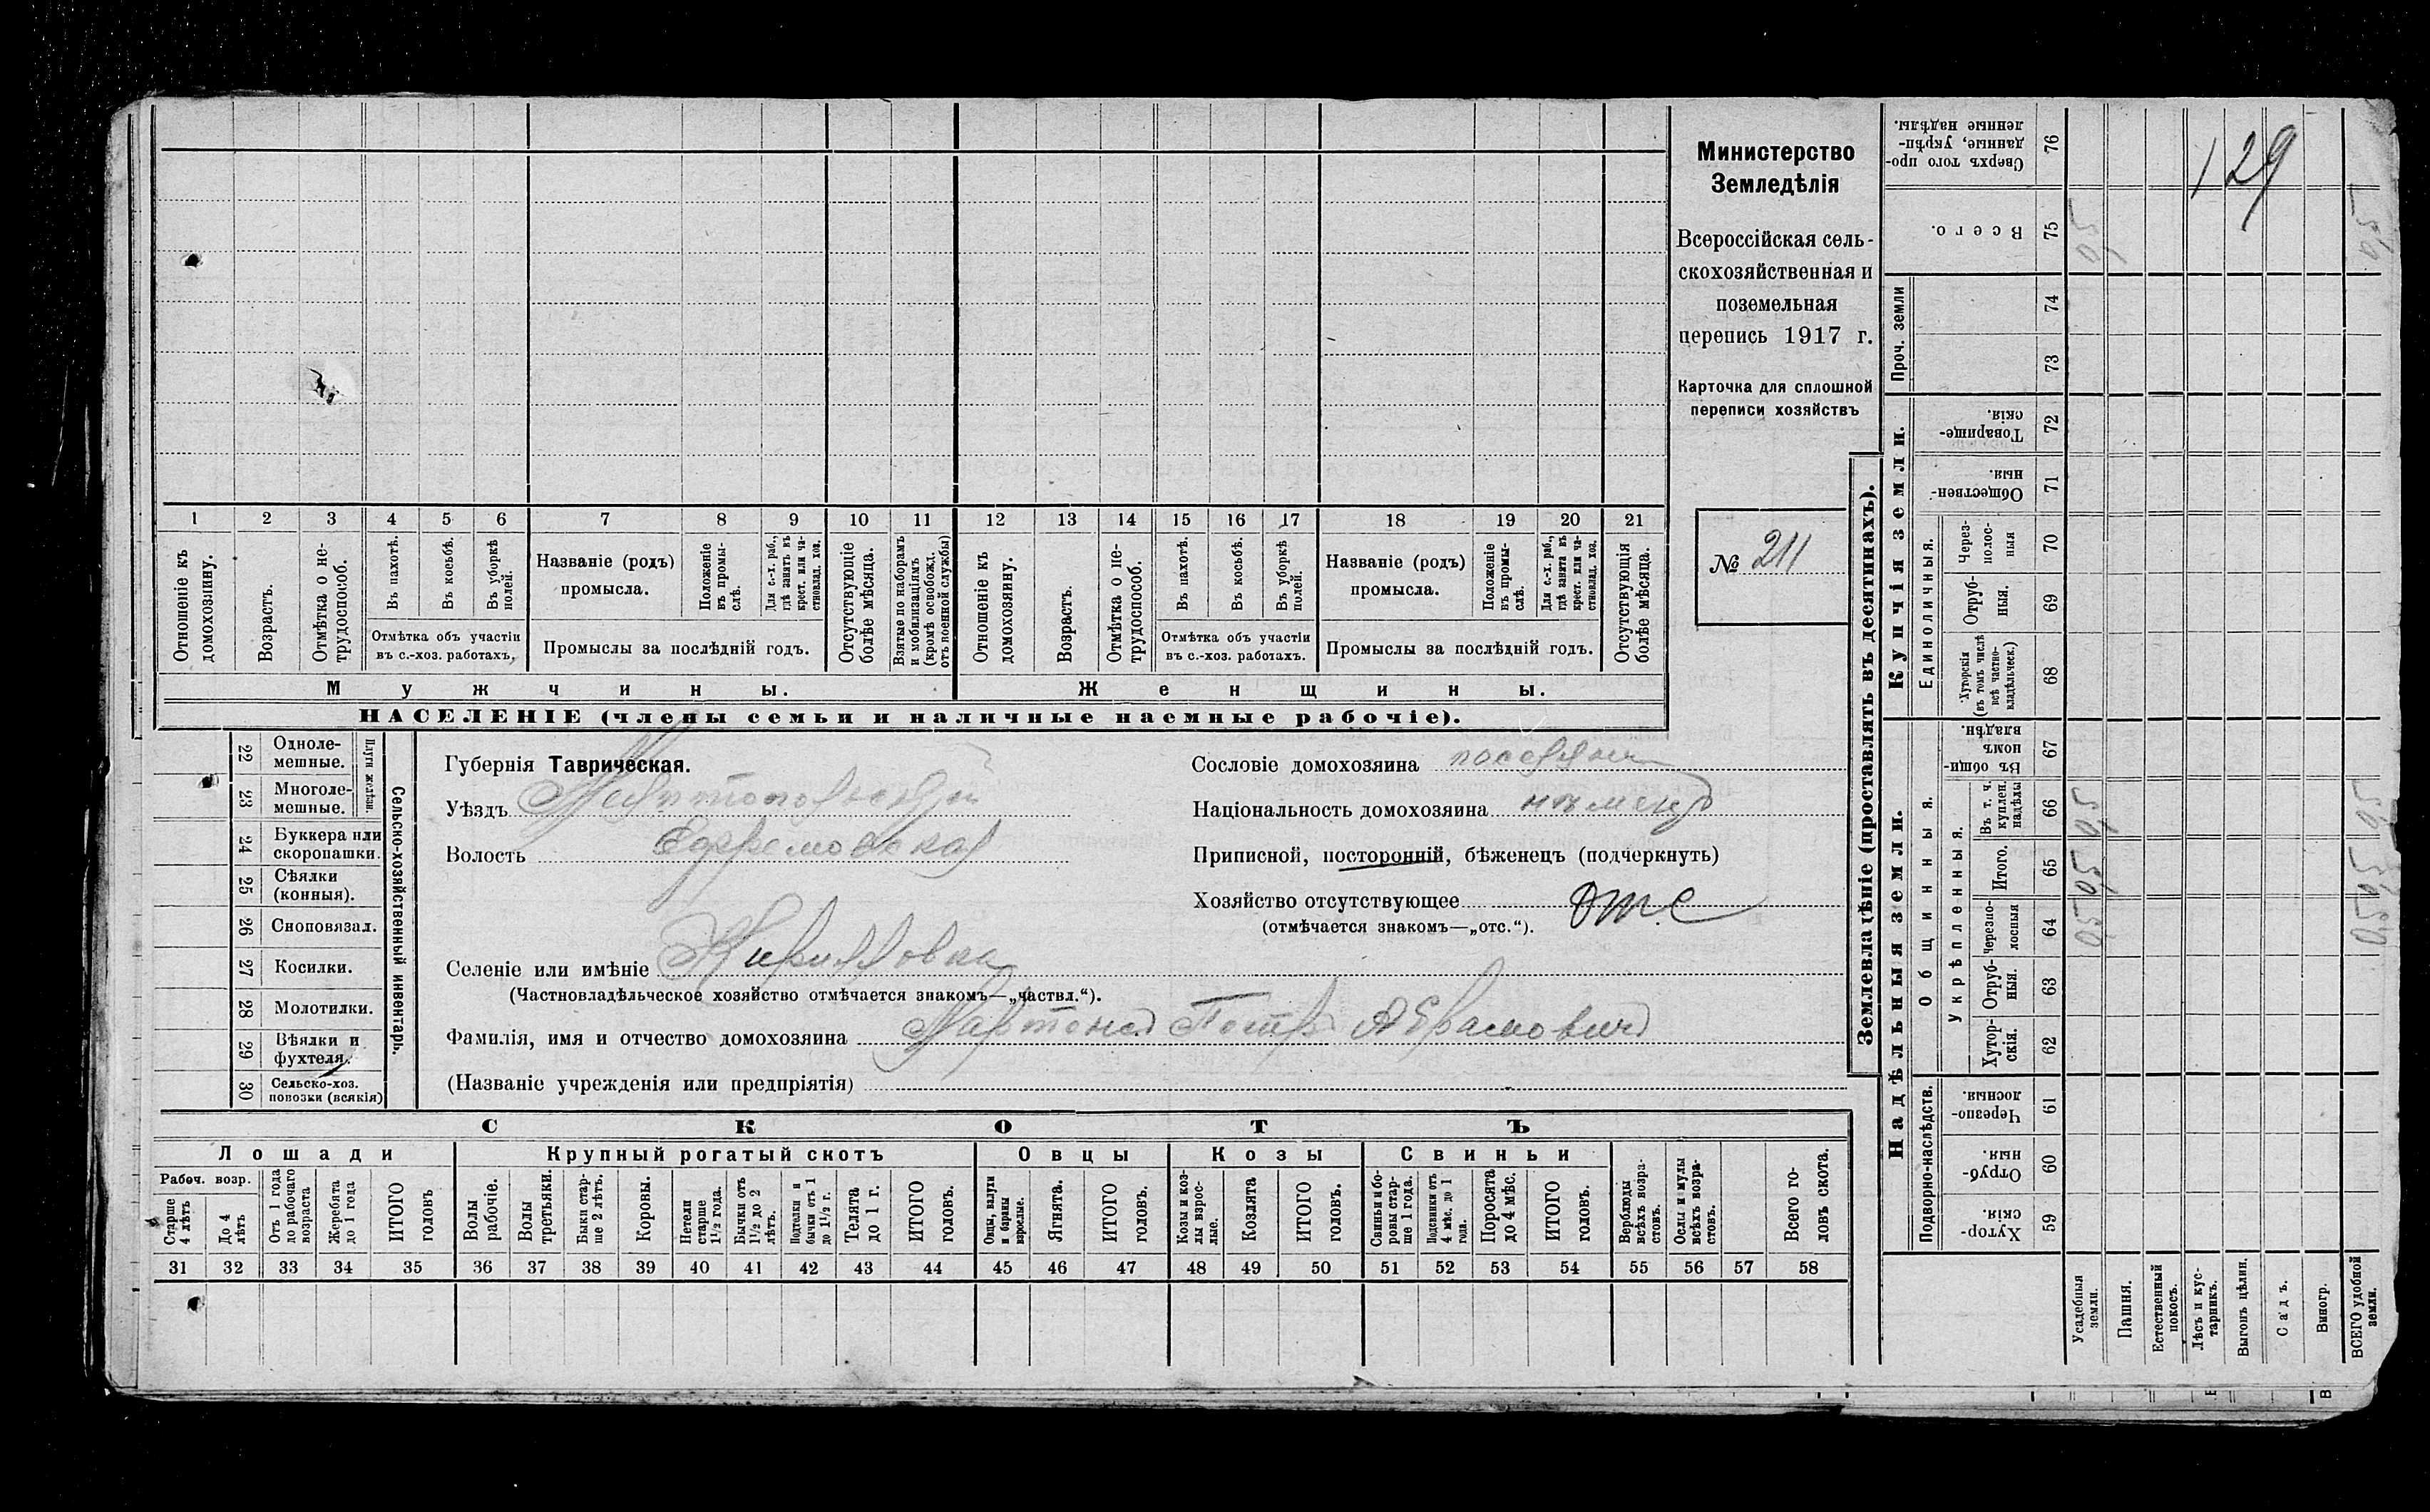 Министерство
Земледѣлія
Всероссійская сель-
скохозяйственная и
поземельная
перепись 1917 г.
Карточка для сплошной
переписи хозяйствъ
№ 211
1 2 3 4 5 6 7 8 9 10 11 12 13 14 15 16 17 18 19 20 21
Отношеніе къ домохозяину.
Возрастъ.
Отмѣтка о не-трудоспособ.
Въ пахотѣ.
Въ косьбѣ.
Въ уборкѣ полей.
Отмѣтка объ участіи
въ с.-хоз. работахъ.
Названіе (родъ)
промысла.
Положеніе въ промы-слѣ.
Для с.-х. раб., гдѣ занятъ въ крест. или ча-стновлад. хоз.
Промыслы за послѣдній годъ.
Отсутствующіе болѣе мѣсяца.
Взятые по наборамъ и мобилизаціямъ (кромѣ освобожд. отъ военной службы)
Отношеніе къ домохозяину.
Возрастъ.
Отмѣтка о не-трудоспособ.
Въ пахотѣ.
Въ косьбѣ.
Въ уборкѣ полей.
Отмѣтка объ участіи
въ с.-хоз. работахъ.
Названіе (родъ)
промысла.
Положеніе въ промы-слѣ.
Для с.-х. раб., гдѣ занята въ крест. или ча-стновлад. хоз.
Промыслы за послѣдній годъ.
Отсутствующія болѣе мѣсяца.
Мужчины.
Женщины.
НАСЕЛЕНІЕ (члены семьи и наличные наемные рабочіе).
22 Одноле-мешные.
23 Многоле-мешные.
24 Буккера или скоропашки.
25 Сѣялки (конныя).
26 Сноповязал.
27 Косилки.
28 Молотилки.
29 Вѣялки и фухтеля.
30 Сельско-хоз. повозки (всякія)
Сельско-хозяйственный инвентарь.
Губернія Таврическая.
Уѣздъ Мелитопольскій
Волость Ефремовская
Селеніе или имѣніе Кирилловка
(Частновладѣльческое хозяйство отмѣчается знакомъ—„частвл.“).
Фамилія, имя и отчество домохозяина Мартенсъ Петръ Абрамовичъ
(Названіе учрежденія или предпріятія)
Сословіе домохозяина поселян
Національность домохозяина нѣмецъ
Приписной, посторонній, бѣженецъ (подчеркнуть)
Хозяйство отсутствующее отс
(отмѣчается знакомъ—„отс.“).
СКОТЪ
Лошади
Крупный рогатый скотъ
Овцы
Козы
Свиньи
Рабоч. возр.
Старше 4 лѣтъ
До 4 лѣтъ
Отъ 1 года до рабочаго возраста
Жеребята до 1 года
ИТОГО головъ
Волы рабочіе.
Волы третьяки.
Быки стар-ше 2 лѣтъ.
Коровы.
Нетели старше 1½ года.
Бычки отъ 1½ до 2 лѣтъ.
Подтелки и бычки отъ 1 до 1½ г.
Телята до 1 г.
ИТОГО головъ.
Овцы, валухи и бараны взрослые.
Ягнята.
ИТОГО головъ.
Козы и коз-лы взрос-лые.
Козлята
ИТОГО головъ.
Свиньи и бо-ровы стар-ше 1 года.
Подсвинки отъ 4 мѣс. до 1 года.
Поросята до 4 мѣс.
ИТОГО головъ.
Верблюды всѣхъ возра-стовъ.
Ослы и мулы всѣхъ возра-стовъ.
Всего го-ловъ скота.
31 32 33 34 35 36 37 38 39 40 41 42 43 44 45 46 47 48 49 50 51 52 53 54 55 56 57 58
Землевладѣніе (проставлять въ десятинахъ).
Надѣльныя земли.
Купчія земли.
Проч. земли
Подворно-наслѣдств.
Общинныя.
Укрѣпленныя.
Единоличныя.
Сверхъ того про-данные, укрѣп-ленные надѣлы. 76
Всего. 75
74
73
Товарище-скія. 72
Обществен-ныя. 71
Через-полос-ныя 70
Отруб-ныя. 69
Хуторскія (въ томъ числѣ всѣ частно-владѣльческ.) 68
Въ общин-номъ владѣн. 67
Въ т. ч. куплен. надѣлы 66
Итого. 65
Черезпо-лосныя 64
Отруб-ныя. 63
Хутор-скія. 62
Черезпо-лосныя. 61
Отруб-ныя. 60
Хутор-скія. 59
Усадебныя земли.
Пашня.
Естественный покосъ.
Лѣсъ и кус-тарникъ.
Выгонъ цѣлин.
Садъ.
Виногр.
ВСЕГО удобной земли.
129